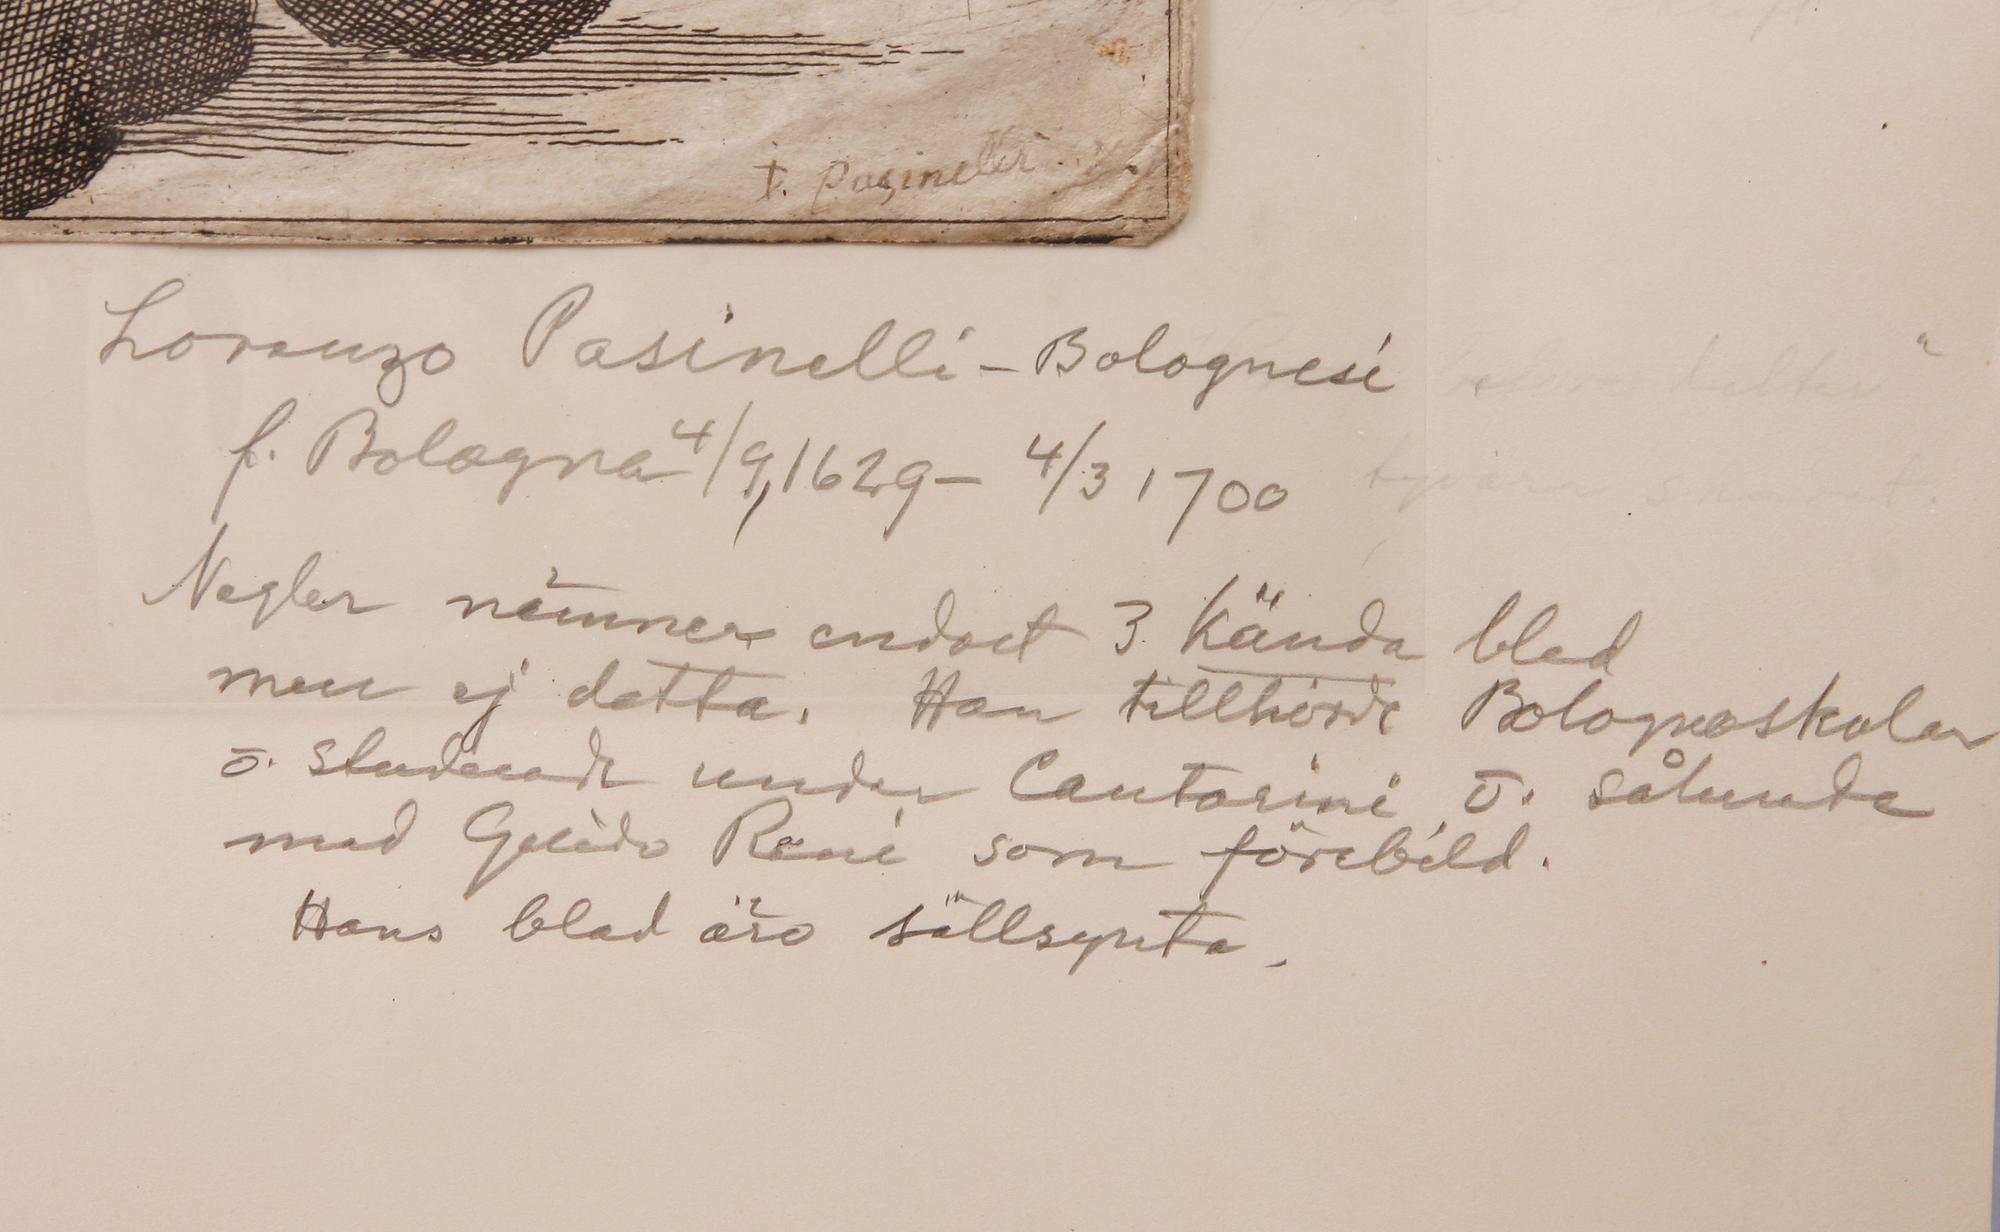 P. Pasinelli
Lorenzo Pasinelli - Bolognesi
f. Bologna 4/9, 1629 - 4/3 1700
Nagler nämner endast 3 kända blad
men ej detta. Han tillhörde Bolognaskolan
o. studerade under Cantarini o. sålunda
med Guido Reni som förebild.
Hans blad äro sällsynta.